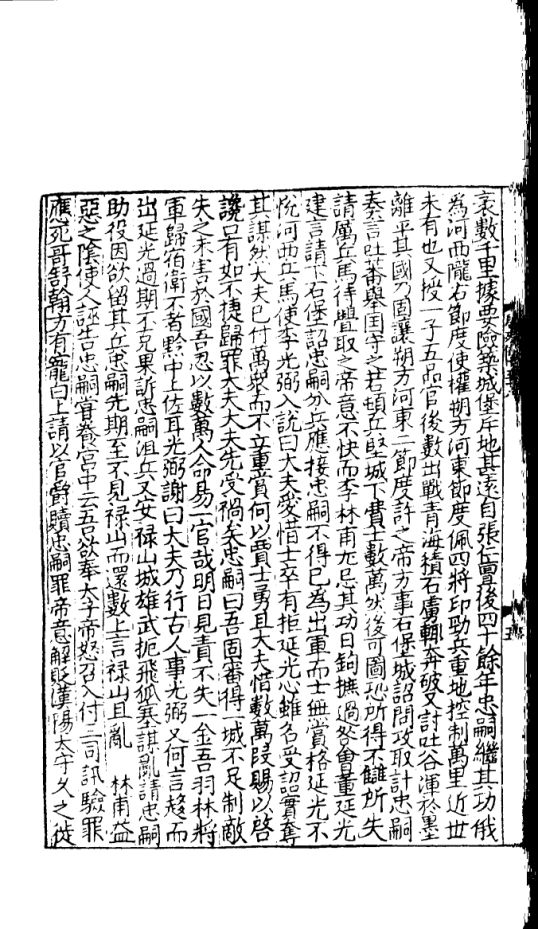 袤數千里據要險築城堡斥地甚遠自張仁亶後四十餘年忠嗣繼其功俄
為河西隴右節度使權朔方河東節度佩四將印勁兵重地控制萬里近世
未有也又授一子五品官後數出戰青海積石虜輒奔破又討吐谷渾於墨
離平其國乃固讓朔方河東二節度許之帝方事石保城詔問攻取計忠嗣
奏言吐蕃舉國守之若頓兵堅城下費士數萬然後可圖恐所得不讎所失
請厲兵馬待釁取之帝意不快而李林甫尤忌其功日鉤摭過咎會董延光
建言請下石堡詔忠嗣分兵應接忠嗣不得已為出軍而士無賞格延光不
悅河西兵馬使李光弼入說曰大夫愛惜士卒有拒延光心雖名受詔實奪
其謀然大夫已付萬眾而不立重賞何以賈士勇且大夫惜數萬段賜以啓
讒口有如不捷歸罪大夫大夫先受禍矣忠嗣曰吾固審得一城不足制敵
失之未害於國吾忍以數萬人命易一官哉明日見責不失一金吾羽林將
軍歸宿衛不者黔中上佐耳光弼謝曰大夫乃行古人事光弼又何言趍而
出延光過期不克果訴忠嗣沮兵又安祿山城雄武扼飛狐塞謀亂請忠嗣
助役因欲留其兵忠嗣先期至不見祿山而還數上言祿山且亂 林甫益
惡之陰使人誣告忠嗣嘗養宮中云吾欲奉太子帝怒召入付三司訊驗罪
應死哥舒翰方有寵白上請以官爵贖忠嗣罪帝意解貶漢陽太守久之徙